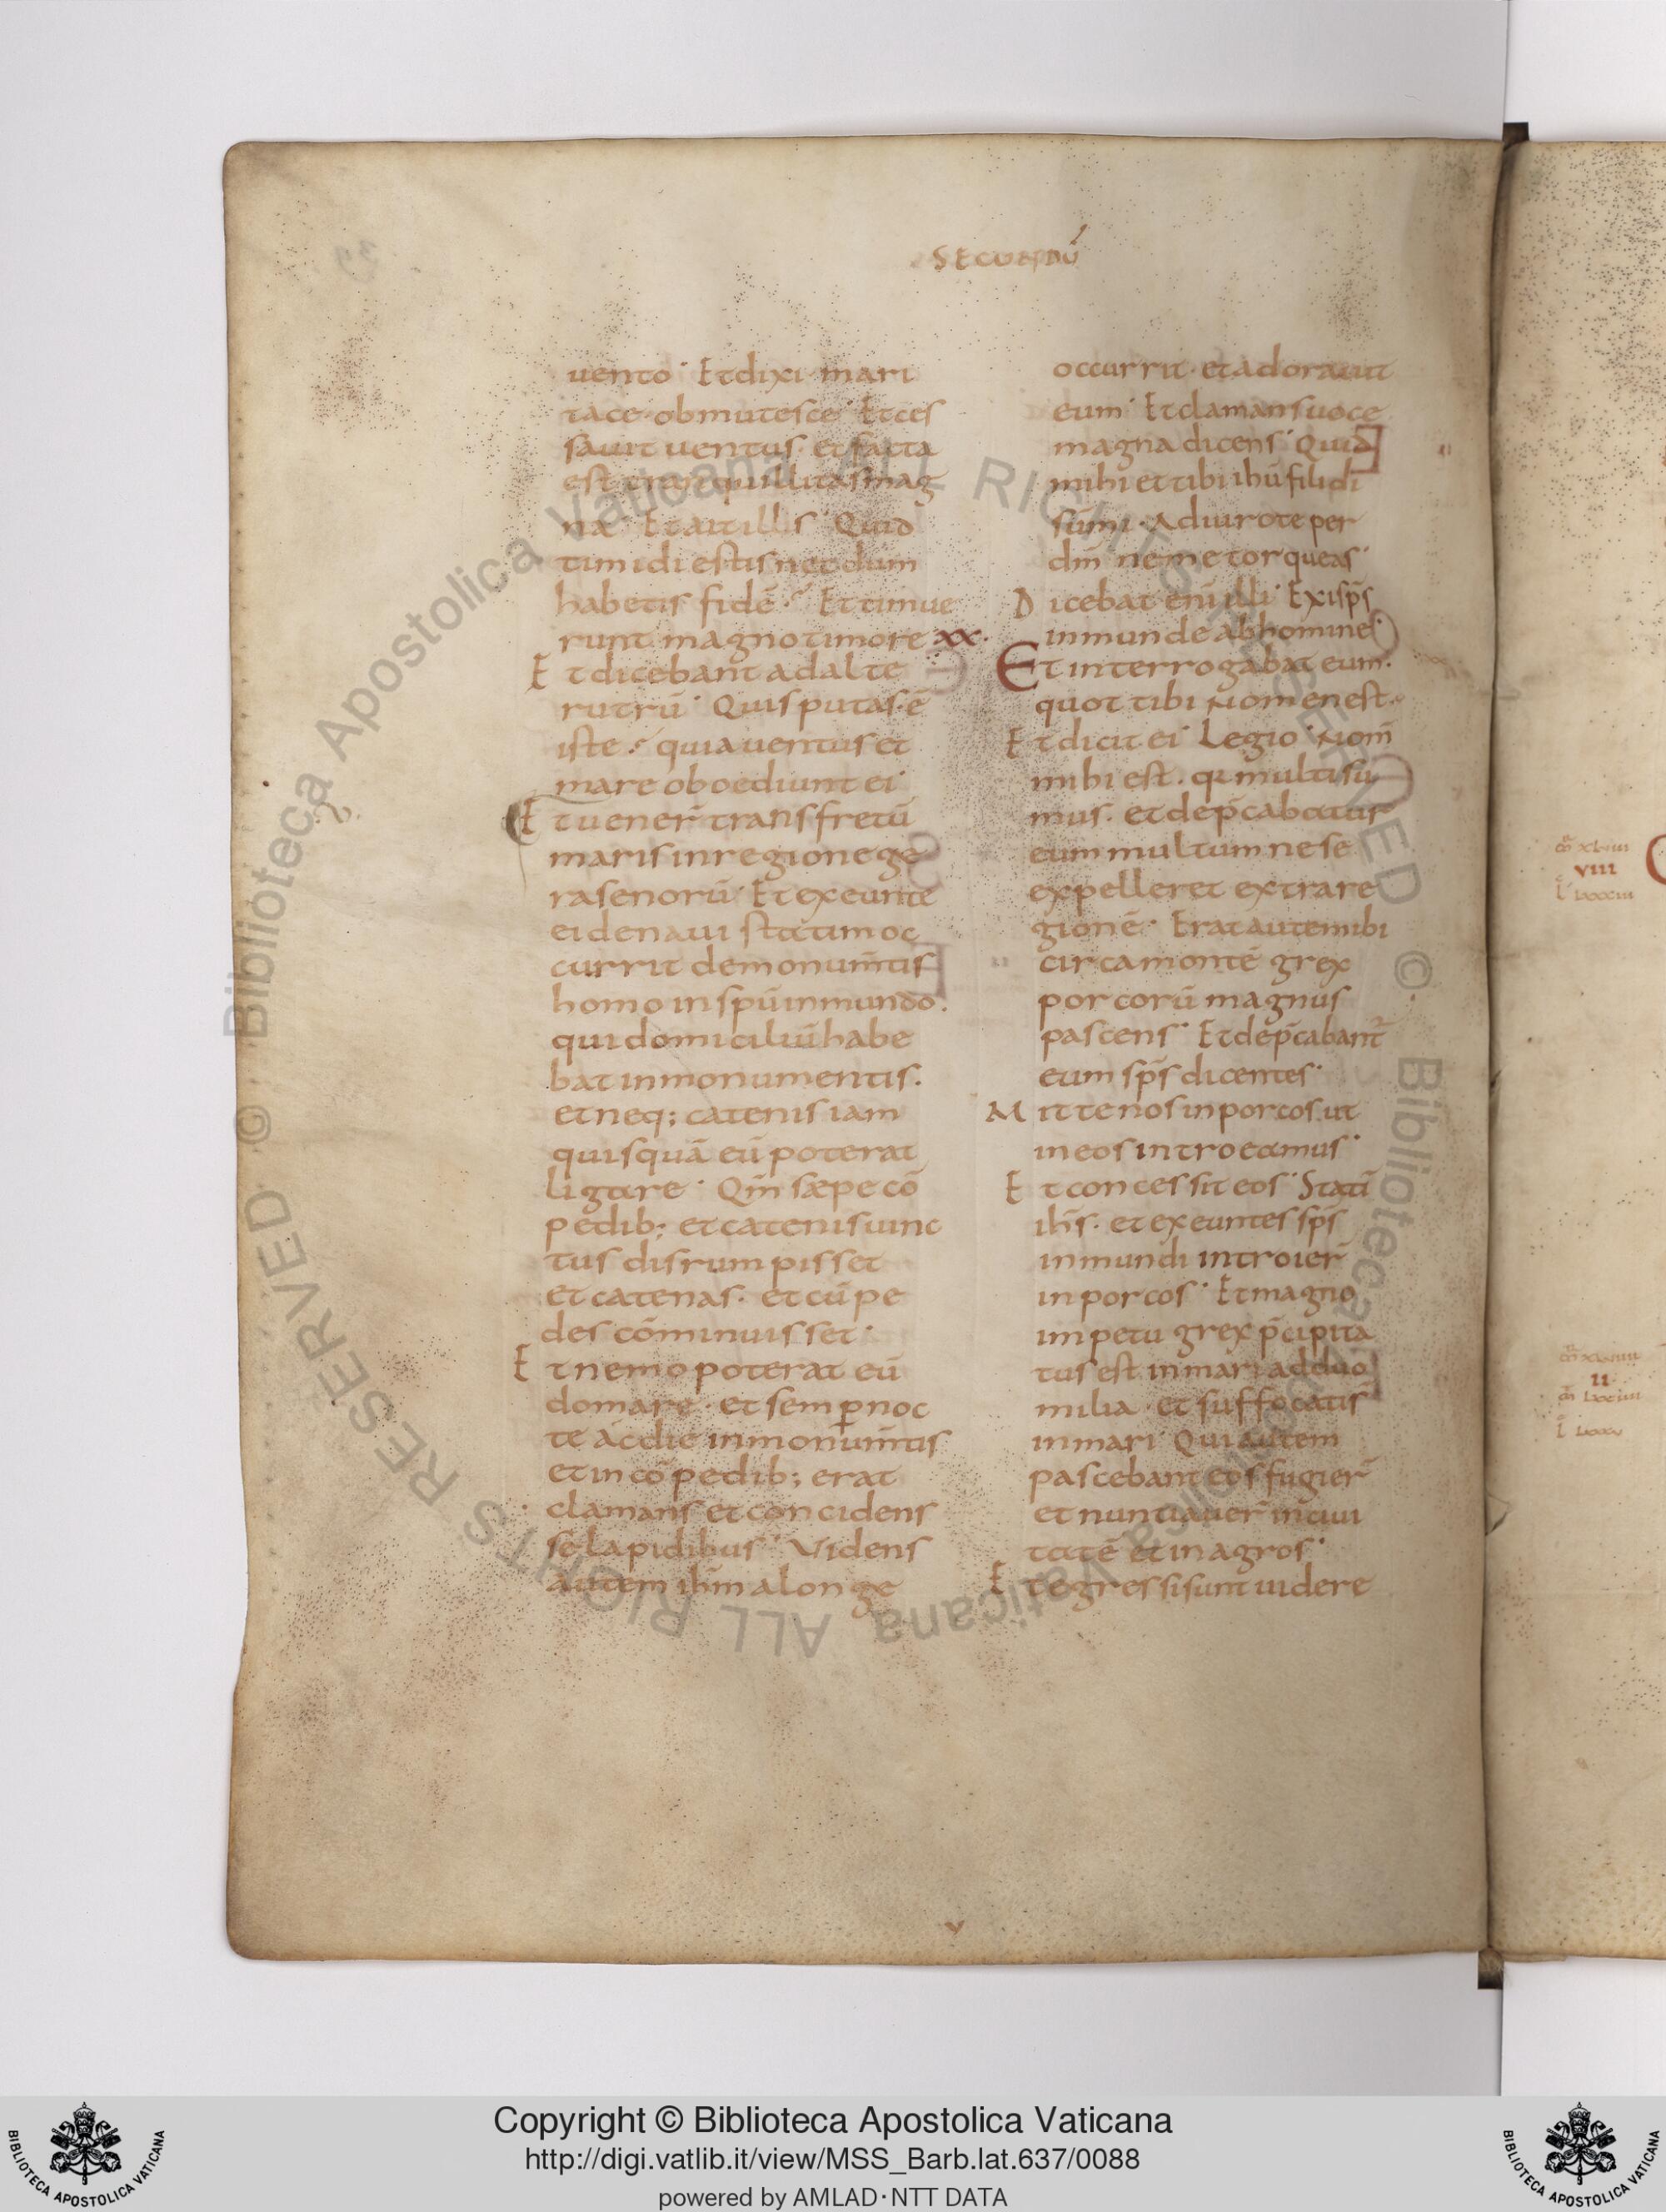 SECUNDŪ
uento · Et dixi mari
tace · obmutesce · Et ces
sauit uentus · et facta
est tranquillitas mag
na · Et ait illis · Quid
timidi estis nec dum
habetis fidē · Et timue
runt magno timore xx·
Et dicebant ad alte
rutrū · Quis putas · ē
iste · quia uentus et
mare oboediunt ei
Et uener̄ trans fretū
maris in regione ge
rasenorū · Et exeunte
ei de naui statim oc
currit de monum̄tis
homo in spū inmundo ·
qui domiciliū habe
bat in monumentis ·
et neq; catenis iam
quisquā eū poterat
ligare · Qm̄ sæpe cō
pedib; et catenis uinc
tus disrumpisset
et catenas · et cū pe
des cōminuisset ·
Et nemo poterat eū
domare · et semp̱ noc
te ac die in monum̄tis
et in cō pedib; erat
clamans et concidens
se lapidibus · Videns
autem ihm̄ a longe
occurrit · et adorauit
eum · Et clamans uoce
magna dicens · Quid
mihi et tibi ihū fili di
sūmi · Adiuro te per
dm̄ ne me torqueas ·
Dicebat enī illi · Exi sps̄
inmunde ab homine
Et interrogabat eum ·
quot tibi nomen est ·
Et dicit ei · Legio · Nom̄
mihi est · qr multi su
mus · et dep̄cabatur
eum multum ne se
expelleret extra re
gionē · Erat autem ibi
circa montē grex
porcorū magnus
pascens · Et dep̄cabant̄
eum sps̄ dicentes ·
Mitte nos in porcos ut
in eos introeamus ·
Et concessit eos · Statī
ihs̄ · et exeuntes sps̄
inmundi introier̄
in porcos · Et magno
impetu grex p̄cipita
tus est in mari ad duo
milia · et suffocatis̄
in mari · Qui autem
pascebant eos fugier̄
et nuntiauer̄ in ciui
tatē et in agros ·
Et egressi sunt uidere
VIII
II
Copyright © Biblioteca Apostolica Vaticana
http://digi.vatlib.it/view/MSS_Barb.lat.637/0088
powered by AMLAD·NTT DATA
BIBLIOTECA APOSTOLICA VATICANA
BIBLIOTECA APOSTOLICA VATICANA
© Biblioteca Apostolica Vaticana ALL RIGHTS RESERVED © Biblioteca Apostolica Vaticana ALL RIGHTS RESERVED